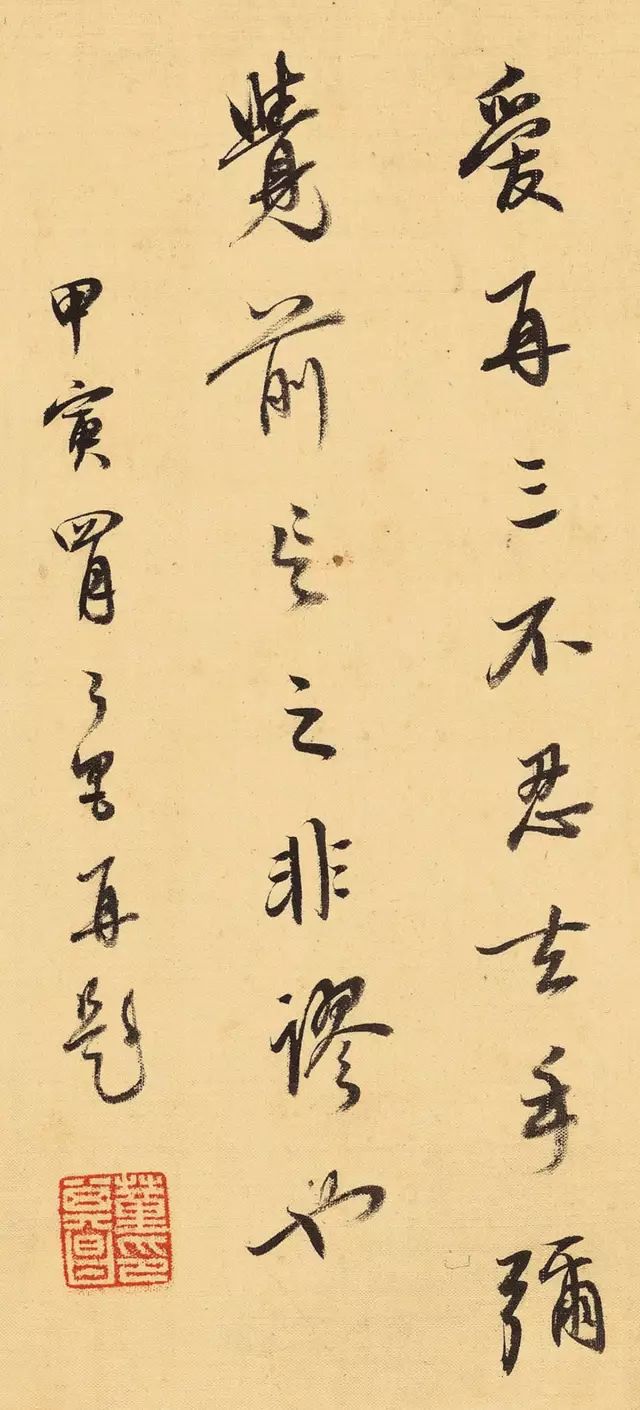 愛再三不忍去手彌
覺前言之非謬也
甲寅四月玄宰再題
董其昌印